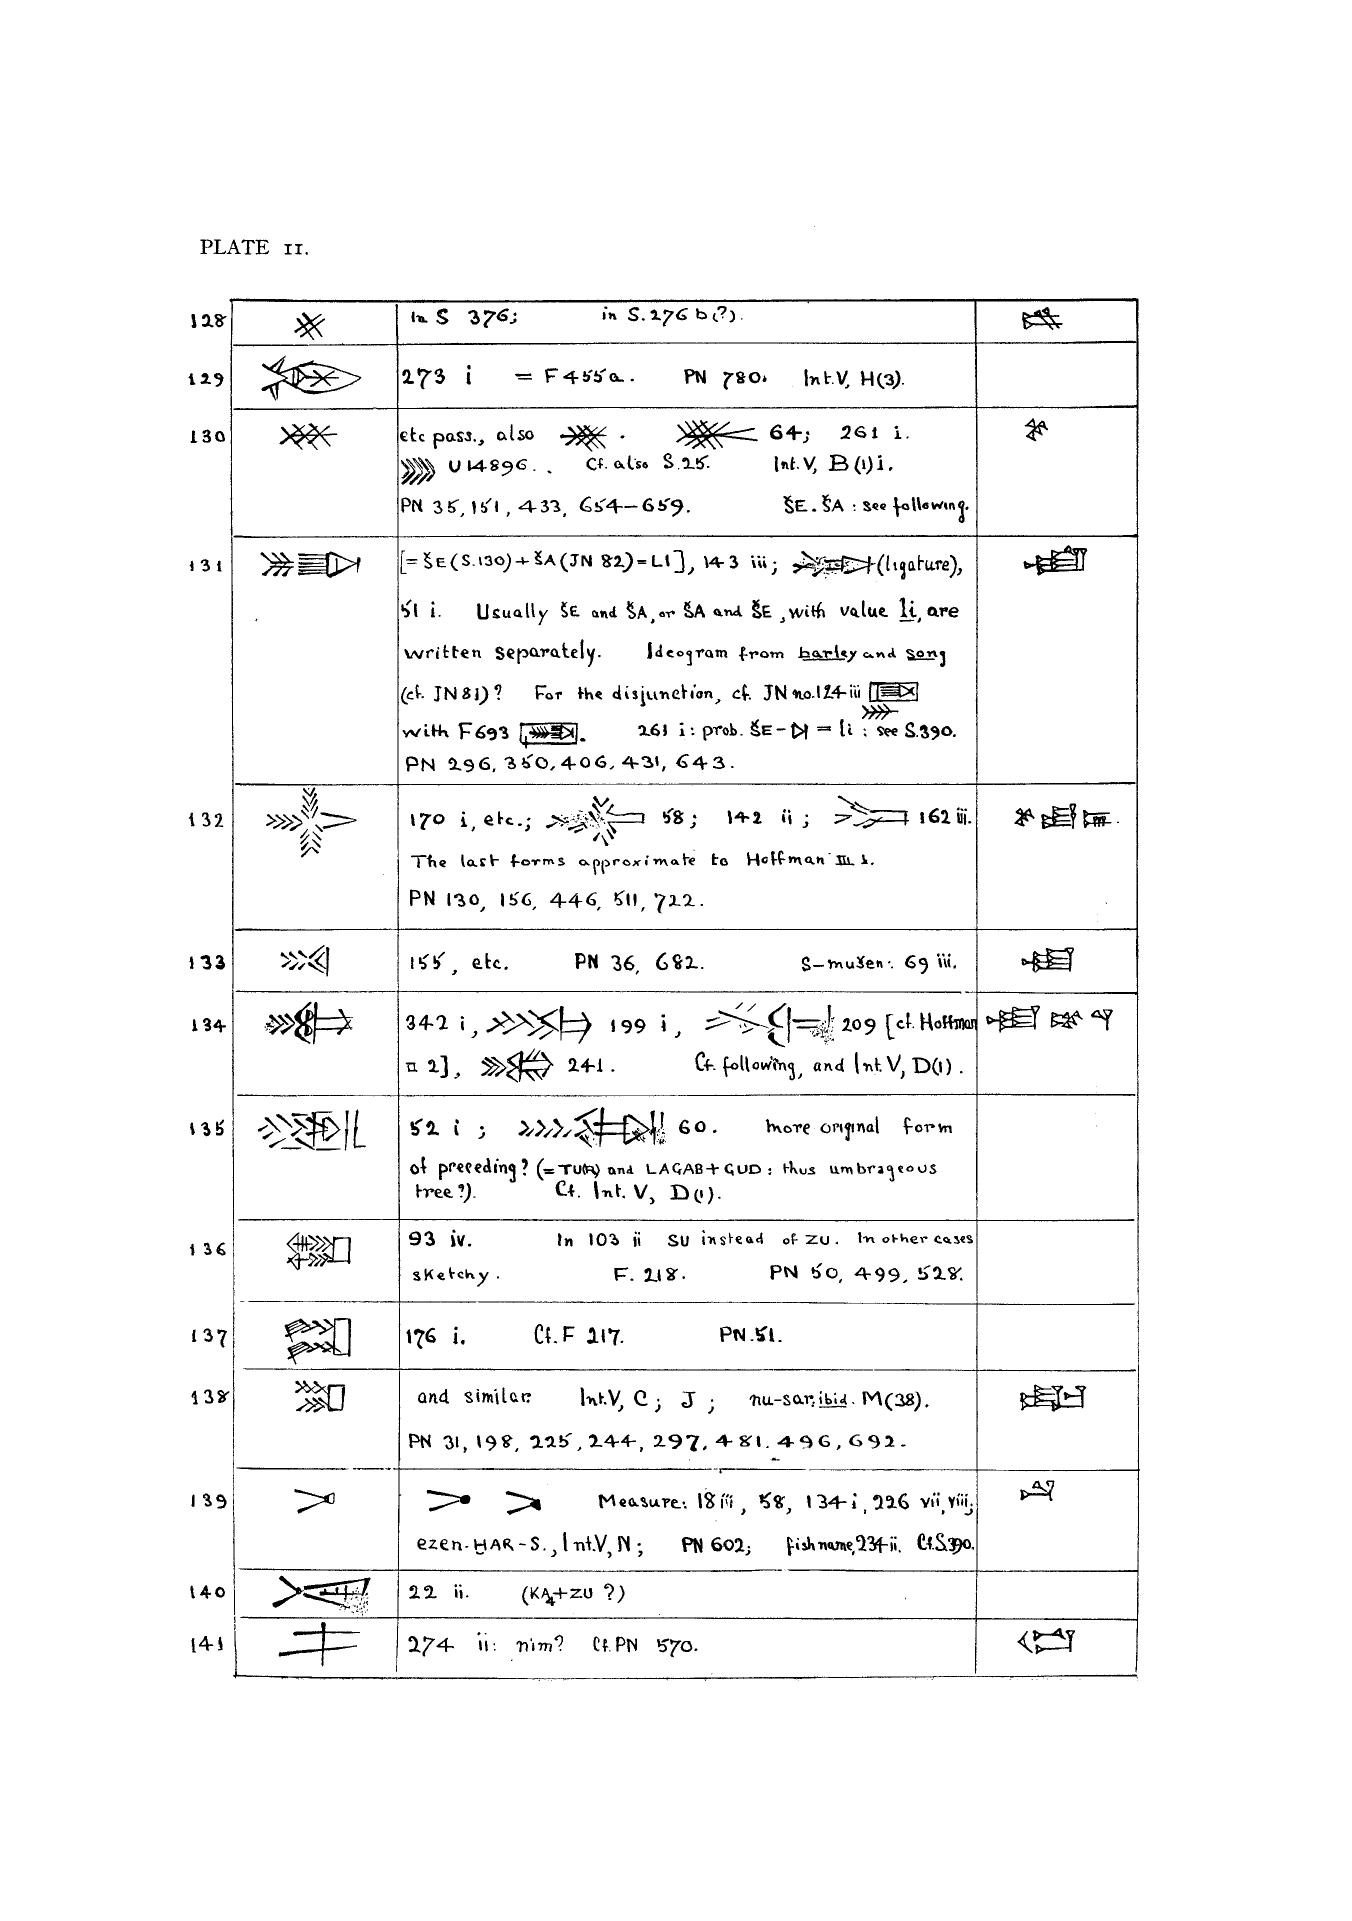 PLATE 11.
128 in S 376; in S. 276 b(?).
129 273 i = F 455a. PN 780. Int. V, H(3).
130 etc pass., also . 64; 261 i.
U 14896. . Cf. also S.25. Int. V, B(1)i.
PN 35, 151, 433, 654–659. ŠE.ŠA : see following.
131 [= ŠE (S.130) + ŠA (JN 82) = LI], 143 iii; (ligature),
51 i. Usually ŠE and ŠA, or ŠA and ŠE, with value li, are
written separately. Ideogram from barley and song
(cf. JN 81)? For the disjunction, cf. JN no. 124 iii
with F 693 . 261 i: prob. ŠE – = li : see S.390.
PN 296, 350, 406, 431, 643.
132 170 i, etc.; 58; 142 ii; 162 iii.
The last forms approximate to Hoffman III 1.
PN 130, 156, 446, 511, 722.
133 155, etc. PN 36, 682. S–mušen: 69 iii.
134 342 i, 199 i, 209 [cf. Hoffman
II 2], 241. Cf. following, and Int. V, D(1).
135 52 i; 60. more original form
of preceding? (= TU(R) and LAGAB + GUD : thus umbrageous
tree?). Cf. Int. V, D(1).
136 93 iv. In 103 ii SU instead of ZU. In other cases
sketchy. F. 218. PN 50, 499, 528.
137 176 i. Cf. F 217. PN. 51.
138 and similar. Int. V, C; J; nu-sar, ibid. M(38).
PN 31, 198, 225, 244, 297, 481, 496, 692.
139 Measure: 18 iii, 58, 134 i, 226 vii, viii;
ezen-ḪAR–S., Int. V, N; PN 602; fish name, 234 ii. Cf. S.390.
140 22 ii. (KA₄+ZU ?)
141 274 ii: nim? Cf. PN 570.